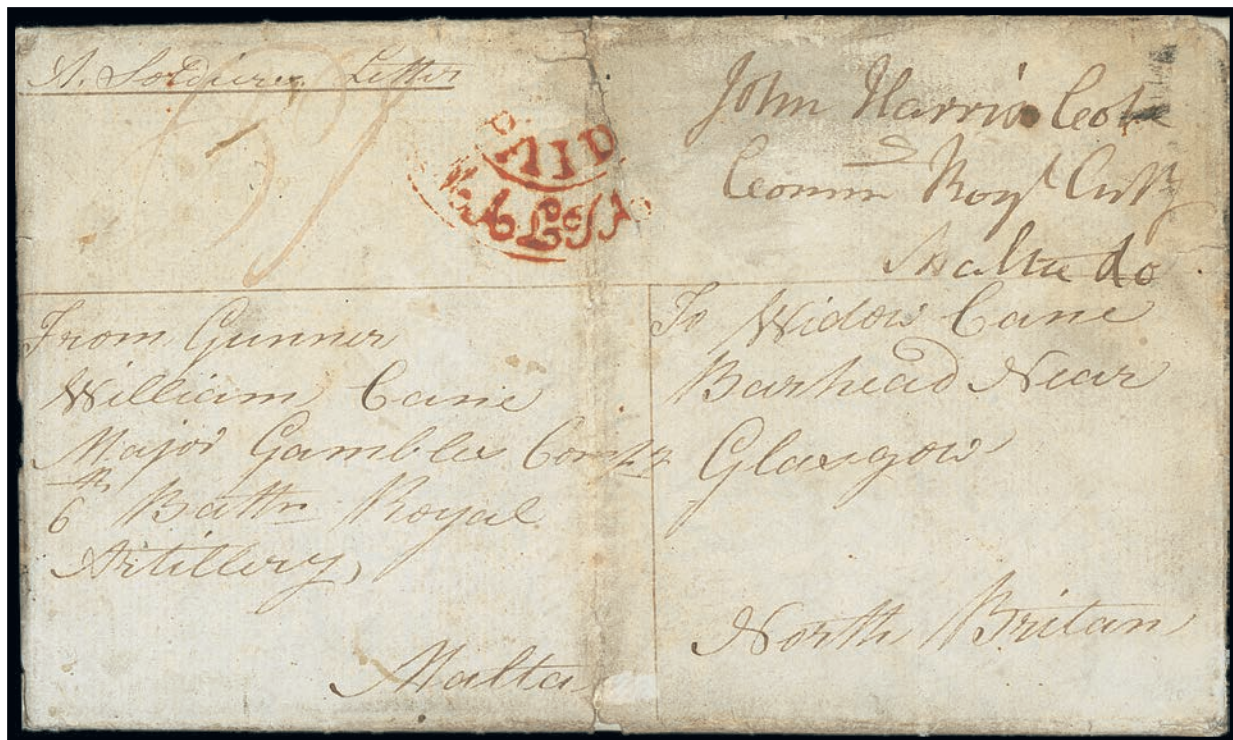 A Soldiers Letter
PAID
John Harris Col
Comm Roy Arty
Malta do
From Gunner
William Cane
Major Gambles Compy
6th Battn Royal
Artillery,
Malta
To Widow Cane
Barhead Near
Glasgow
North Britan